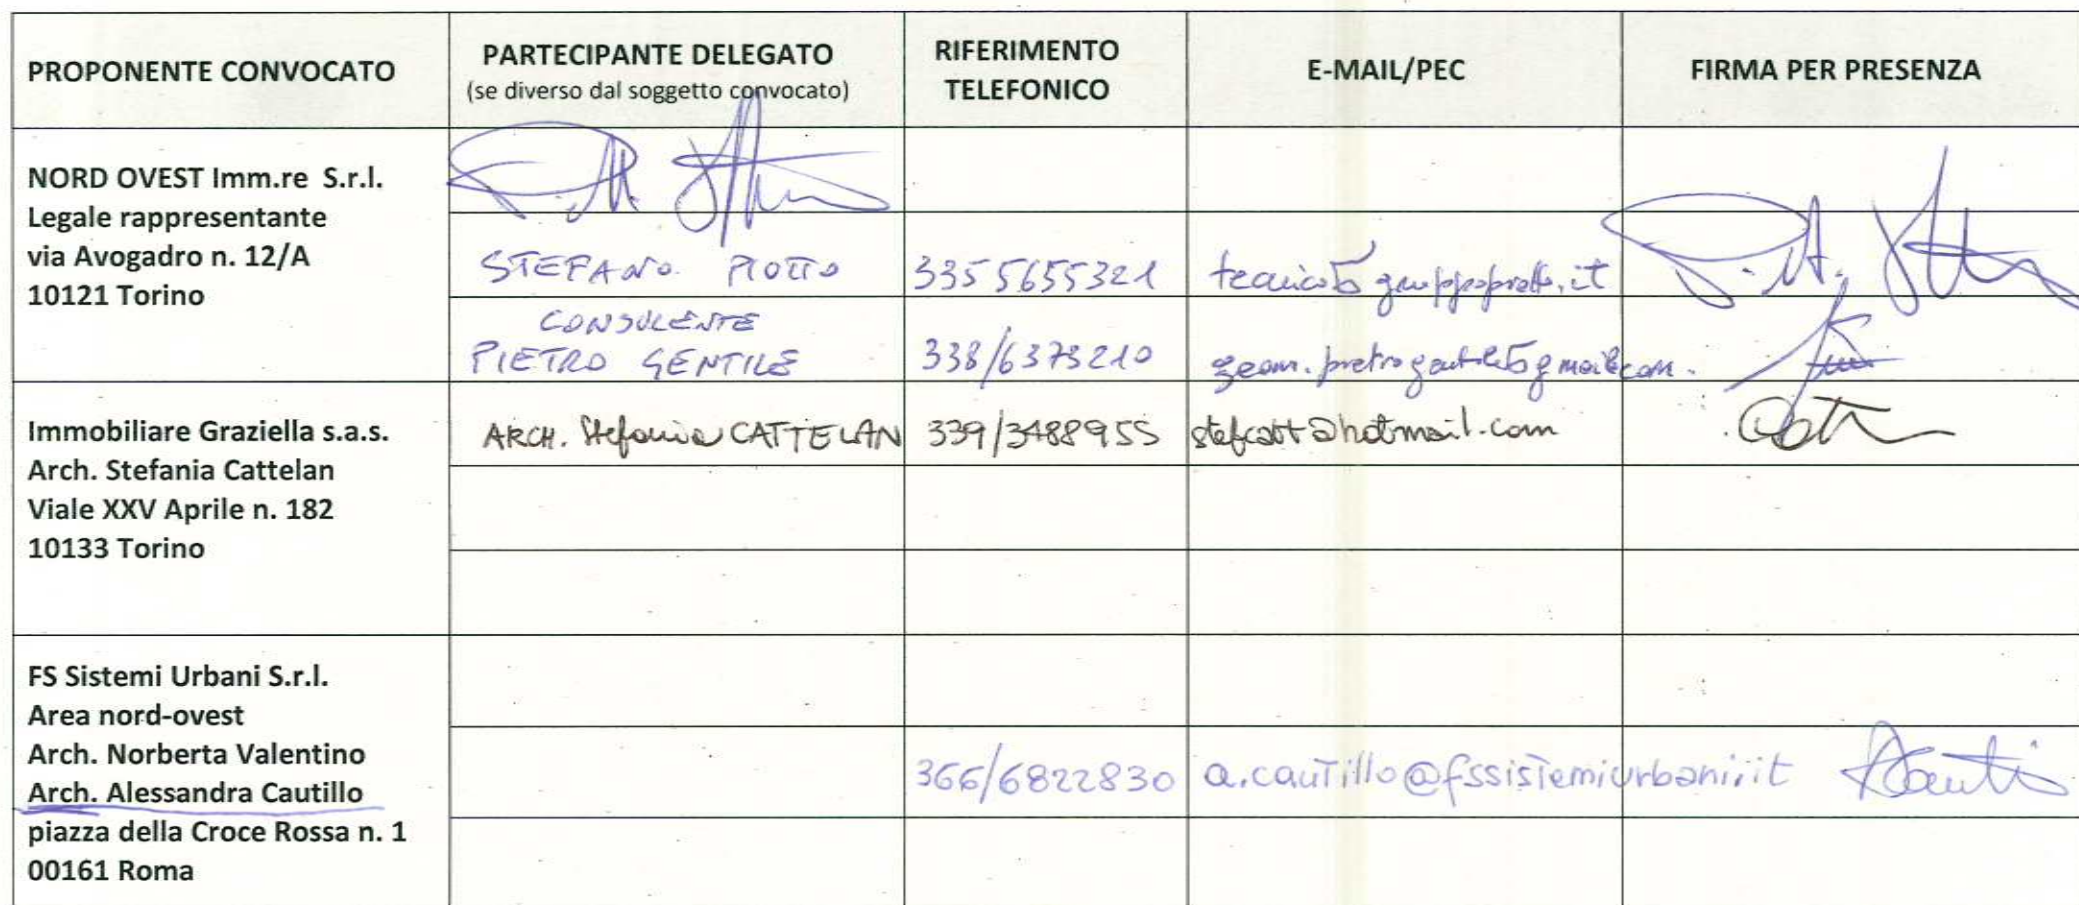 PROPONENTE CONVOCATO
PARTECIPANTE DELEGATO
(se diverso dal soggetto convocato)
RIFERIMENTO
TELEFONICO
E-MAIL/PEC
FIRMA PER PRESENZA
NORD OVEST Imm.re S.r.l.
Legale rappresentante
via Avogadro n. 12/A
10121 Torino
STEFANO 3355655321
CONSULENTE
PIETRO GENTILE 338/6373210
Immobiliare Graziella s.a.s.
Arch. Stefania Cattelan
Viale XXV Aprile n. 182
10133 Torino
ARCH. Stefania CATTELAN 339/3488955 stefcatt@hotmail.com
FS Sistemi Urbani S.r.l.
Area nord-ovest
Arch. Norberta Valentino
Arch. Alessandra Cautillo
piazza della Croce Rossa n. 1
00161 Roma
366/6822830 a.cautillo@fssistemiurbani.it